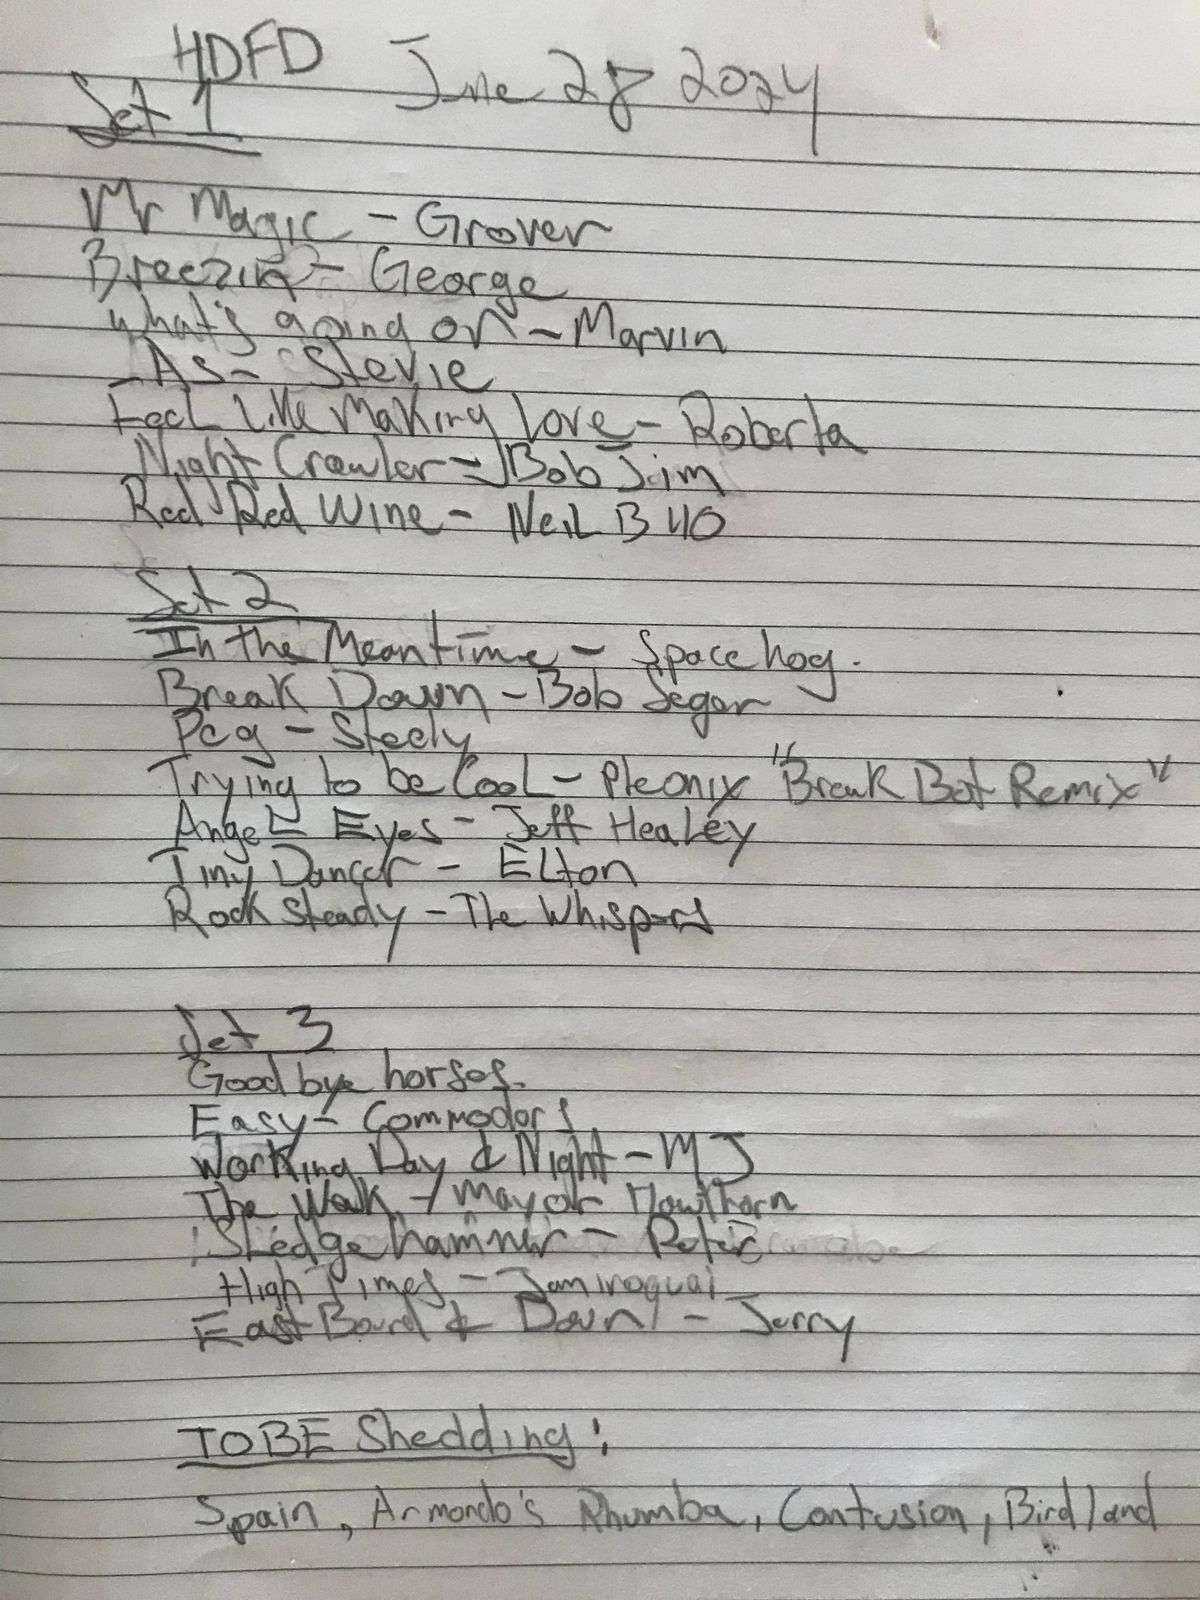 HDFD June 28 2024
Set 1
Mr Magic - Grover
Breezin - George
What's going on - Marvin
As - Stevie
Feel Like Making Love - Roberta
Night Crawler - Bob Jim
Red Red Wine - Neil B 40
Set 2
In the Meantime - Space hog.
Break Down - Bob Seger
Peg - Steely
Trying to be Cool - Pheonix "Break Bot Remix"
Angel Eyes - Jeff Healey
Tiny Dancer - Elton
Rock Steady - The Whispers
Set 3
Good bye horses.
Easy - Commodors
Working Day & Night - MJ
The Walk - Mayor Hawthorn
Sledge hammer - Peter
High Times - Jamiroquai
East Bound & Down - Jerry
TO BE Shedding:
Spain, Armondo's Rhumba, Contusion, Birdland